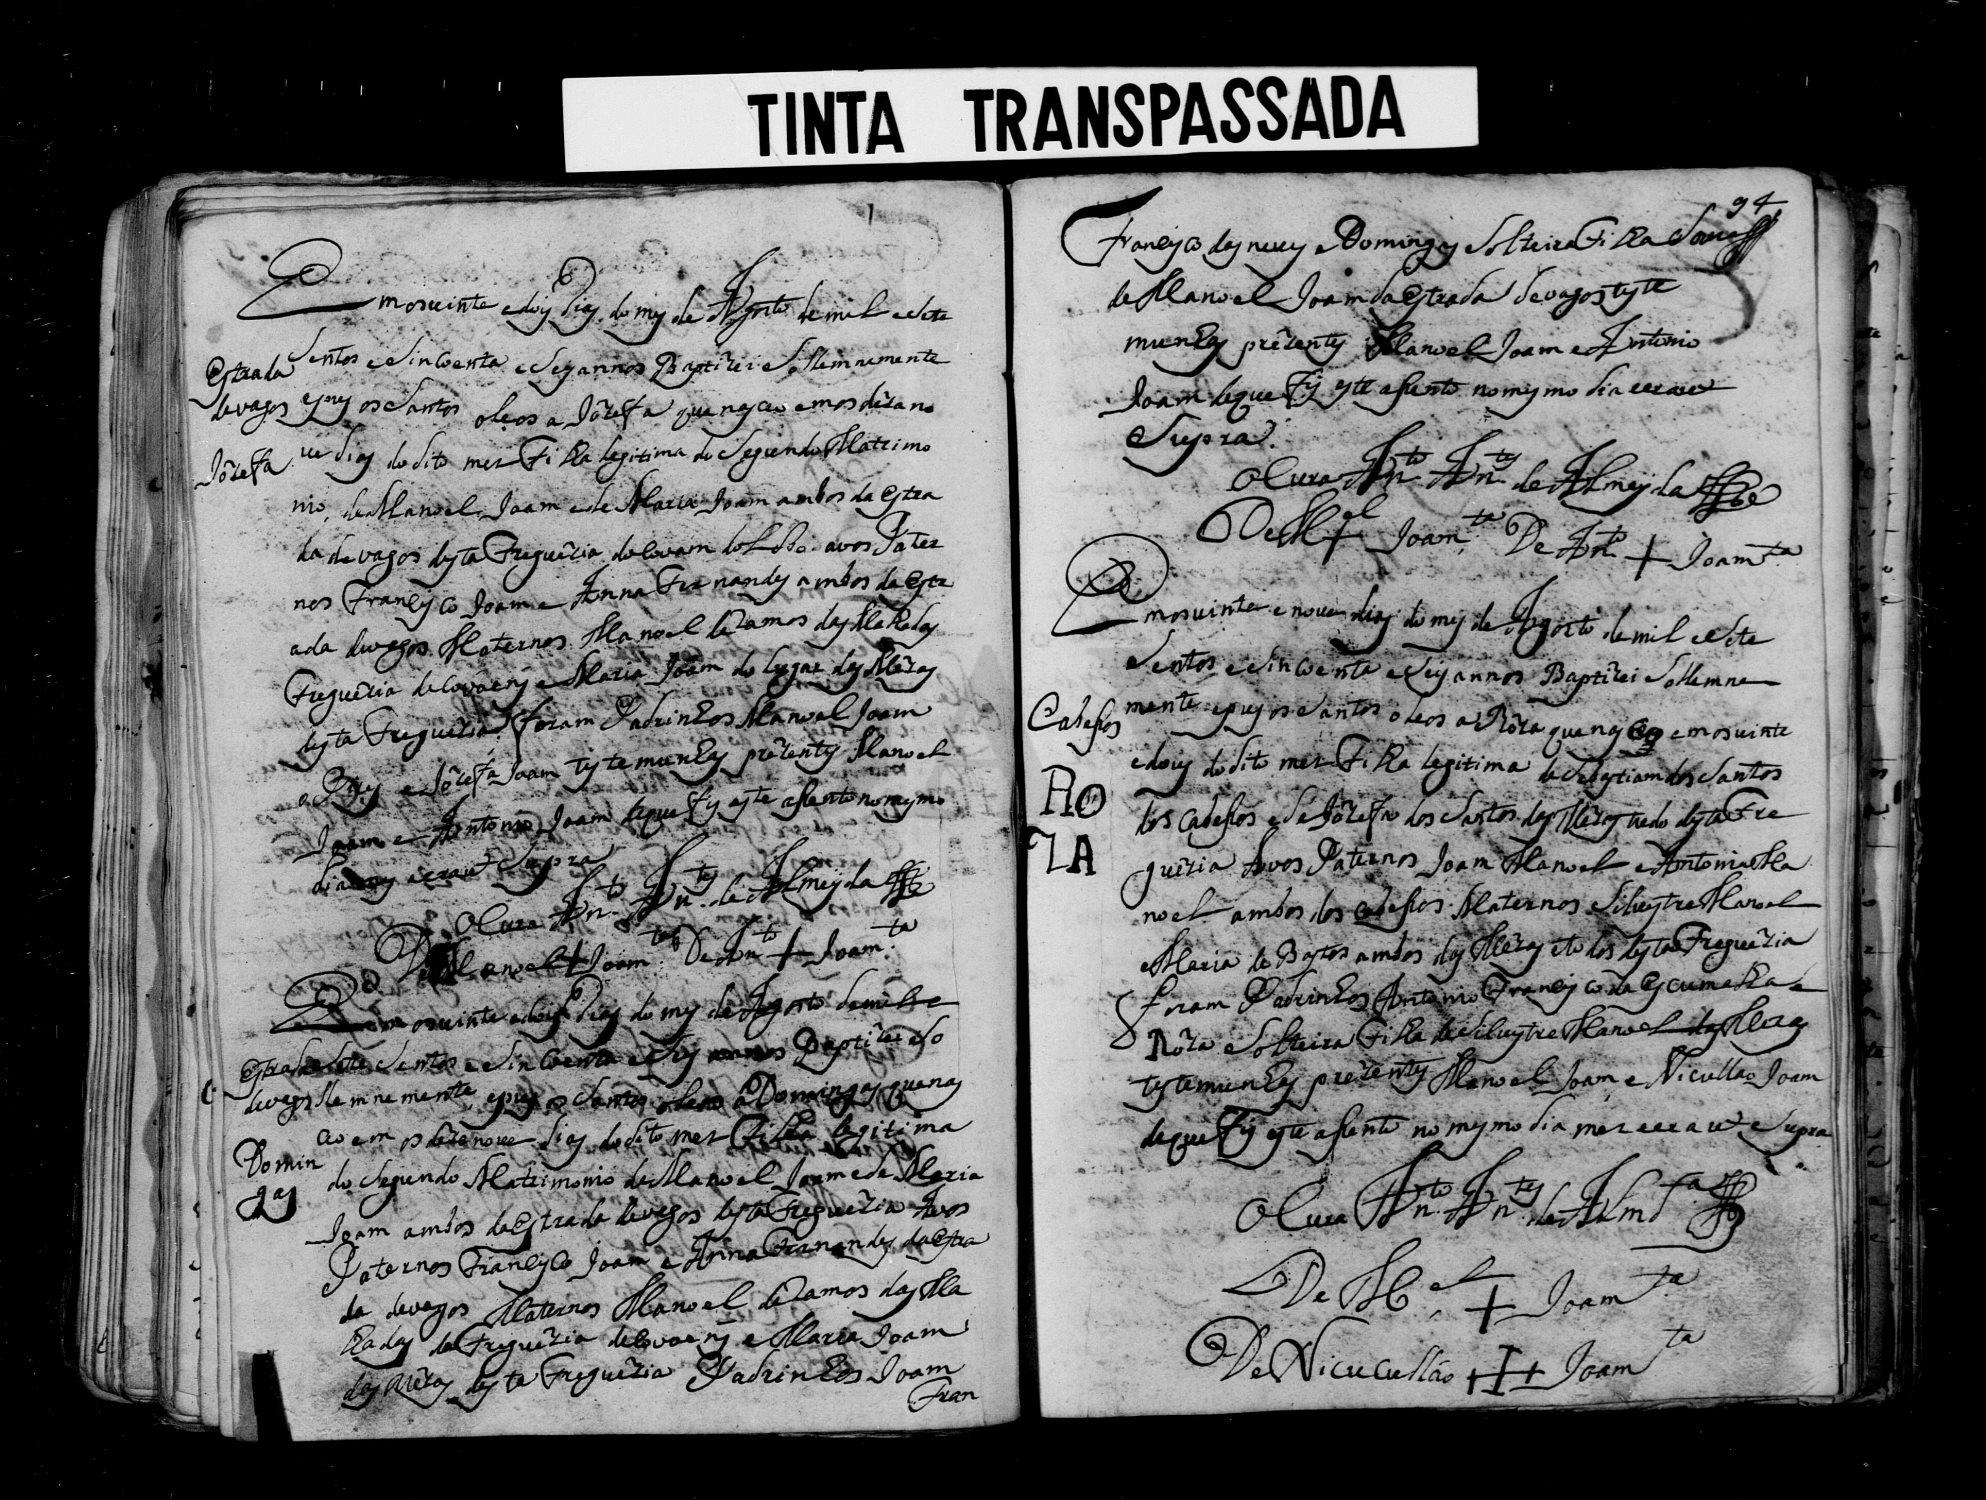 TINTA TRANSPASSADA
Emosvinte edoys Dias do mes de Agosto de mil e sete
Estrada sentos e sincoenta e seys annos Baptizei solemnemente
devagos e pus os santos oleos a Jozefa que nasceo emos dezano
Jozefa ve dias do dito mes Filha legitima do segundo Matrimo
nio de Manoel Joam e de Maria Joam ambos da Estra
da de vagos desta Freguezia do Covam do Lobo avos Pater
nos Francisco Joam e Anna Fernandes ambos da Estr
ada devagos Maternos Manoel Ramos das Malhadas
Freguezia de e Maria Joam do lugar das Mezas
desta Freguezia foram Padrinhos Manoel Joam
e Jozefa Joam testemunhas prezentes Manoel
Joam e Antonio Joam de que fis este asento no mesmo
dia mes e era ut supra
O Cura Anto Antes de Almeyda
De Manoel + Joam ta De Anto + Joam ta
Em osvinte edoys Dias do mes de Agosto de mil e
Estrada sete sentos e sincoenta e seys annos Baptizei so
devagos llemnemente e pus os santos oleos a Domingas que nas
ceo em os dezenove dias do dito mes Filha legitima
Domin
gas
do segundo Matrimonio de Manoel Joam e de Maria
Joam ambos da Estrada devagos desta Freguezia Avos
Paternos Francisco Joam e Anna Fernandes da Estra
da devagos Maternos Manoel Ramos das Ma
lhadas da Freguezia de e Maria Joam
das Mezas desta Freguezia Padrinhos Joam
Fran
94
Francisco das neves e Domingas solteira Filha
de Manoel Joam da Estrada devagos teste
munhas prezentes Manoel Joam e Antonio
Joam de que fis este asento no mesmo dia e era ut
supra
O Cura Anto Antes de Almeyda
De Mel + Joam ta De Anto + Joam ta
Emosvinte e nove dias do mes de Agosto de mil e sete
sentos e sincoenta e seys annos Baptizei solemne
Cabesos mente e pus os santos oleos a Roza que nasceo emosvinte
RO
ZA
edoys do dito mes Filha legitima de Sebastiam dos Santos
dos Cabesos e de Jozefa dos Santos das Mezas tudo desta Fre
guezia Avos Paternos Joam Manoel e Antonia Ma
noel ambos dos Cabesos Maternos Silvestre Manoel
e Maria de ambos das Mezas e todos desta Freguezia
foram Padrinhos Antonio Francisco da e
Roza solteira Filha de Silvestre Manoel das Mezas
testemunhas prezentes Manoel Joam e Nicullao Joam
de que fis este asento no mesmo dia mes e era ut supra
O Cura Anto Antes de Almda
De Mel + Joam ta
De Nicucullao Joam ta